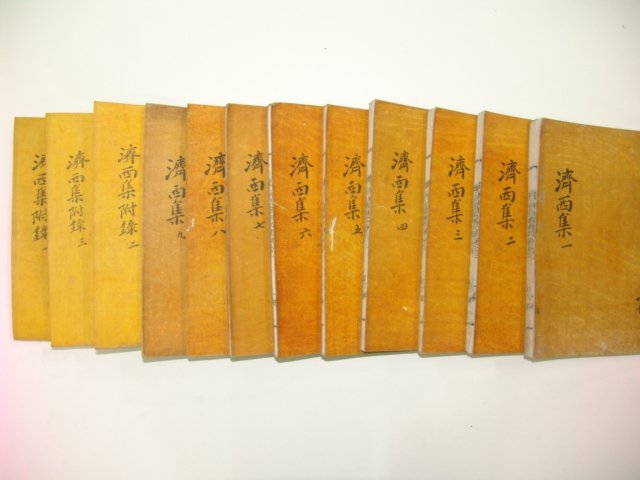 濟西集 一
濟西集 二
濟西集 三
濟西集 四
濟西集 五
濟西集 六
濟西集 七
濟西集 八
濟西集 九
濟西集附錄 二
濟西集附錄 三
濟西集附錄 一